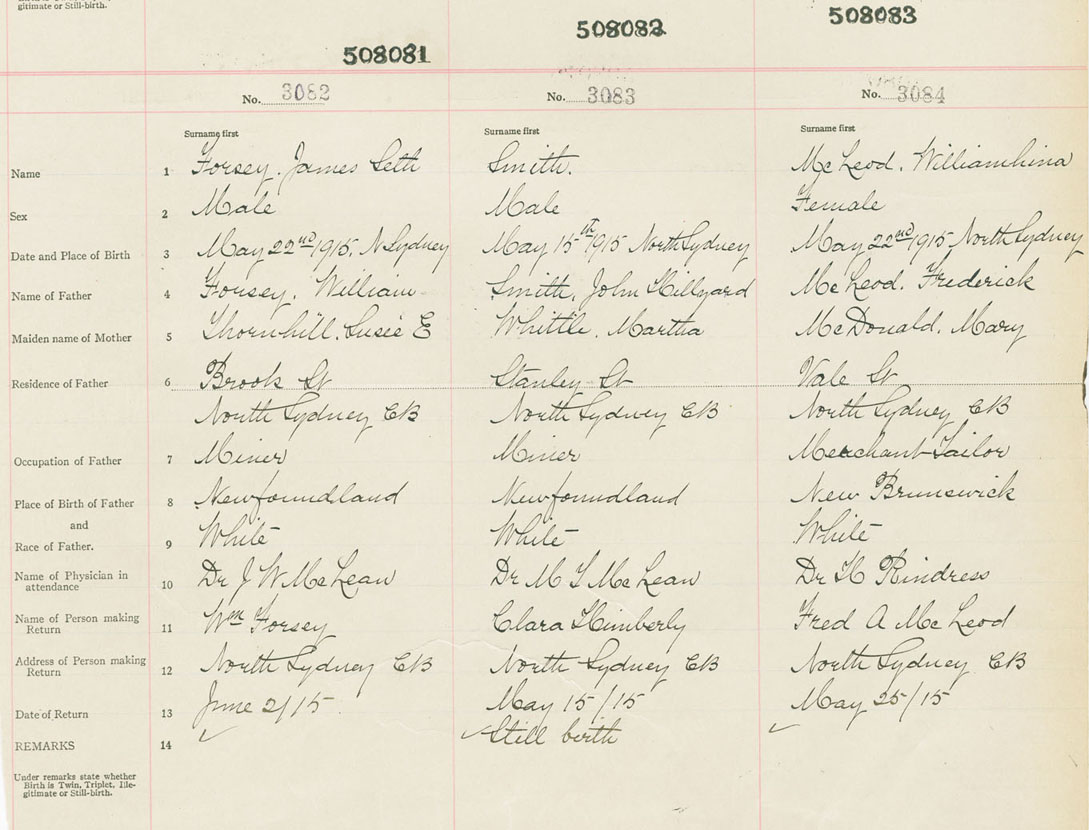 gitimate or Still-birth.
508081 508082 508083
No. 3082 No. 3083 No. 3084
Surname first Surname first Surname first
Name 1 Forsey, James Seth Smith. McLeod, Williamhina
Sex 2 Male Male Female
Date and Place of Birth 3 May 22nd 1915, N Sydney May 15th 1915 North Sydney May 22nd 1915 North Sydney
Name of Father 4 Forsey, William Smith, John Hillyard McLeod, Frederick
Maiden name of Mother 5 Thornhill, Susie E Whittle, Martha McDonald, Mary
Residence of Father 6 Brook St Stanley St Vale St
North Sydney CB North Sydney CB North Sydney CB
Occupation of Father 7 Miner Miner Merchant Tailor
Place of Birth of Father 8 Newfoundland Newfoundland New Brunswick
and
Race of Father. 9 White White White
Name of Physician in attendance 10 Dr J W McLean Dr M McLean Dr H Rindress
Name of Person making Return 11 Wm Forsey Clara Kimberly Fred A McLeod
Address of Person making Return 12 North Sydney CB North Sydney CB North Sydney CB
Date of Return 13 June 2/15 May 15/15 May 25/15
REMARKS 14 Still birth
Under remarks state whether
Birth is Twin, Triplet, Ille-
gitimate or Still-birth.